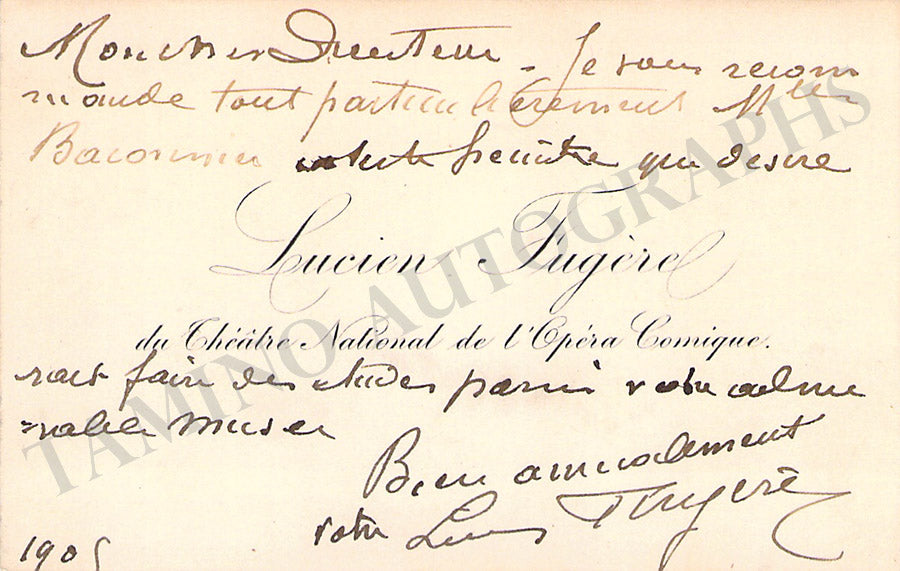 Mon cher Directeur - Je vous recom
mande tout particulièrement Mlle
artiste peintre qui desire
Lucien Fugère
du Théâtre National de l'Opéra Comique.
rait faire des études parmi votre admi
=rable musée
Bien amicalement
votre Lucien Fugère
1905
TAMINO AUTOGRAPHS